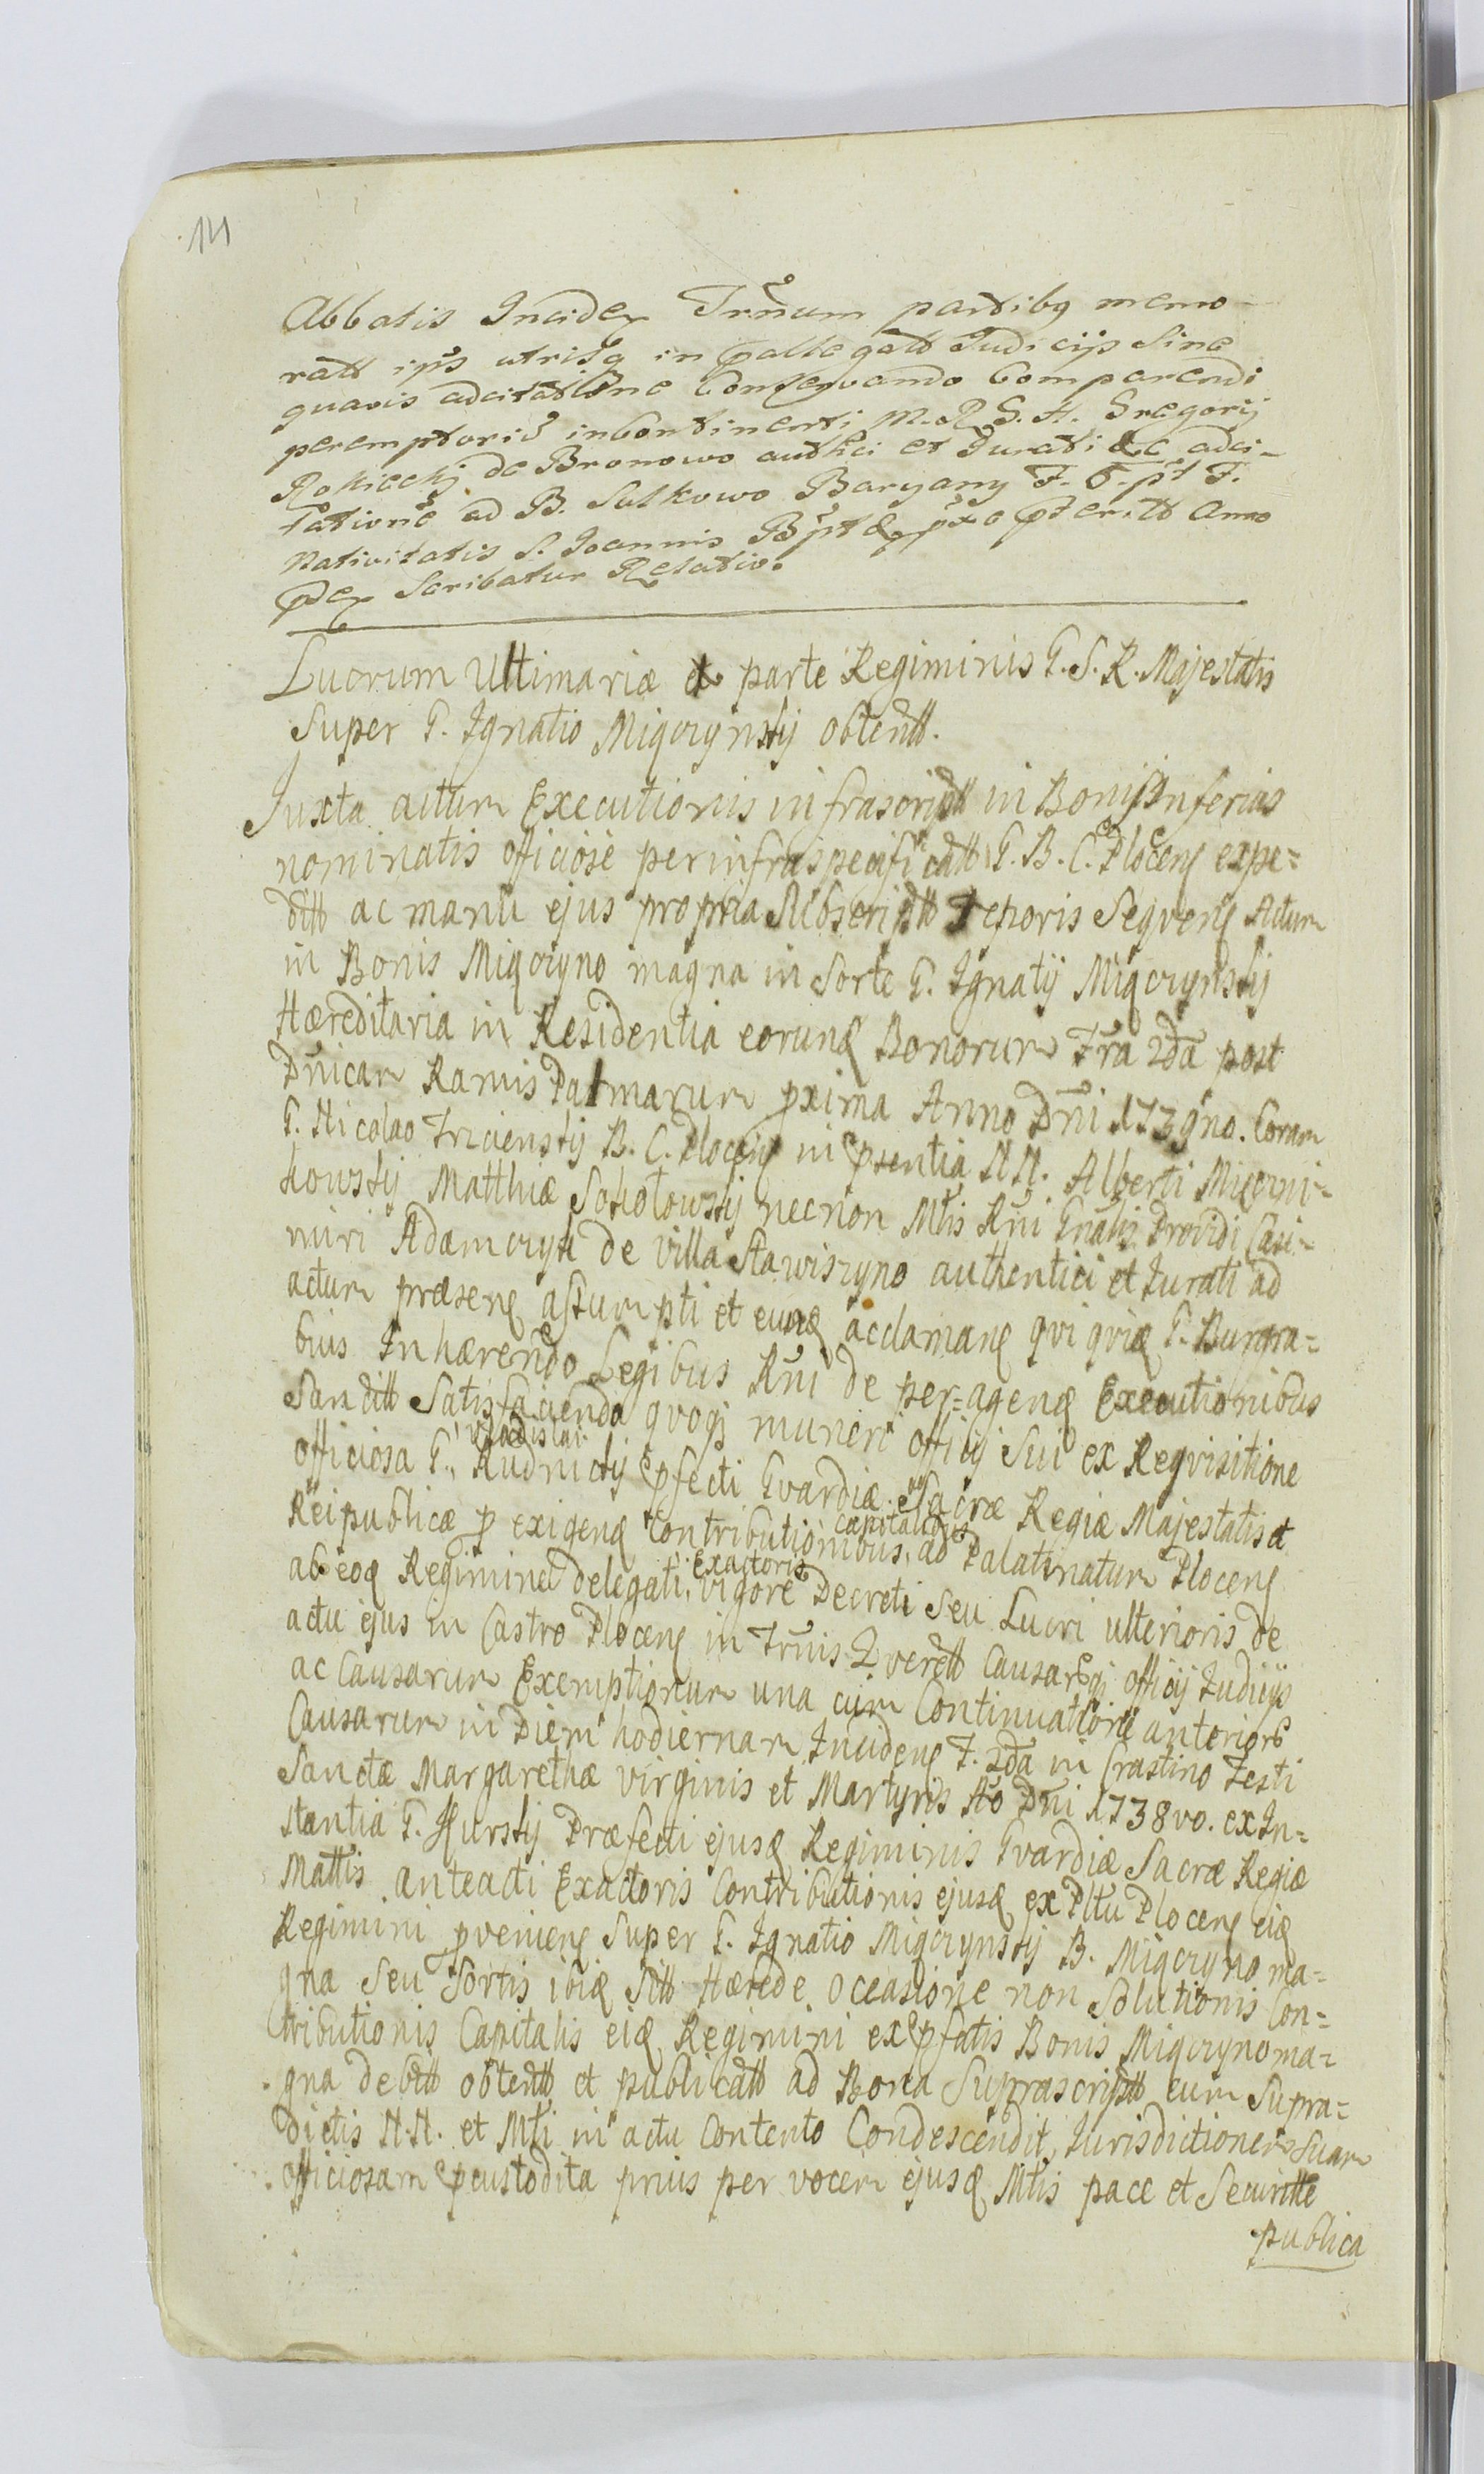 114
Abbatis Inciden Trnum partibq memo-
ratt ips utrisq in pallegatt Judicijs Sine
quavis adcitatione Conservando Comparendi
peremptorie incontinenti M. R. G. H. Gregorij
Rokicckj de Bronowo authci et Jurati &c adci-
tatione ad B. Sulkowo Baryany F. 6. pt F.
Nativitatis S. Joannis Bpt pxe pteritt Anno
pden Scribatur Relatio.
Lucrum Ultimariæ ex parte Regiminis G. S. R. Majestatis
Super G. Ignatio Miączynskij obtentt.
Juxta actum Executionis infrascriptt in Bonis Inferius
nominatis officiose per infraspecificatt G. B. C. Plocens expe=
ditt ac manu ejus propria Subscriptt Teporis Seqvens Actum
in Bonis Miączyno magna in Sorte G. Ignatij Miączynskij
Hæreditaria in Residentia eorund Bonorum Fra 2da post
Dnicam Ramis Palmarum pxima Anno Dni 1739no. Coram
G. Nicolao Trzcienskij B. C. Plocens in psentia NN. Alberti Miszni-
kowskij Matthiæ Sokołowskij necnon Mtis Rni Gnalis Providi Casi-
miri Adamczyk de villa Stawiszyno authentici et Jurati ad
actum præsens assumpti et eund acclamans qvi qvid G. Burgra=
bius Inhærendo Legibus Rni de per=agend Executionibus
Sancitt Satisfaciendo qvoqj muneri officij Sui ex Reqvisitione
officiosa G. Vladislai Rudnickij pfecti Gvardiæ Sacræ Regiæ Majestatis et
Reipublicæ p exigend Contributionibus capitalibus ad Palatinatum Plocens
ab eod Regimine delegati Exactoris vigore Decreti Seu Lucri ulterioris de
actu ejus in Castro Plocens in Trnis Qverell Causarqj officij Judicijs
ac Causarum Exemptionum una cum Continuatione anterior
Causarum in Diem hodiernam Incidens F. 2da in Crastino Festi
Sanctæ Margarethæ virginis et Martyris Ao Dni 1738vo. ex In=
stantia G. Kurskij Præfecti ejusd Regiminis Gvardiæ Sacræ Regiæ
Mattis anteacti Exactoris Contributionis ejusd ex Pltu Plocens eid
Regimini proveniens Super G. Ignatio Miączynskij B. Miączyno ma=
gna Seu Sortis ibid Sitt Hærede occasione non Solutionis Con=
tributionis Capitalis eid Regimini ex pfatis Bonis Miączyno ma=
gna debitt obtentt et publicatt ad Bona Suprascriptt cum Supra=
dictis N.N. et Mti in actu Contento Condescendit, Jurisdictionem Suam
officiosam pcustodita prius per vocem ejusd Mtis pace et Securitte
publica